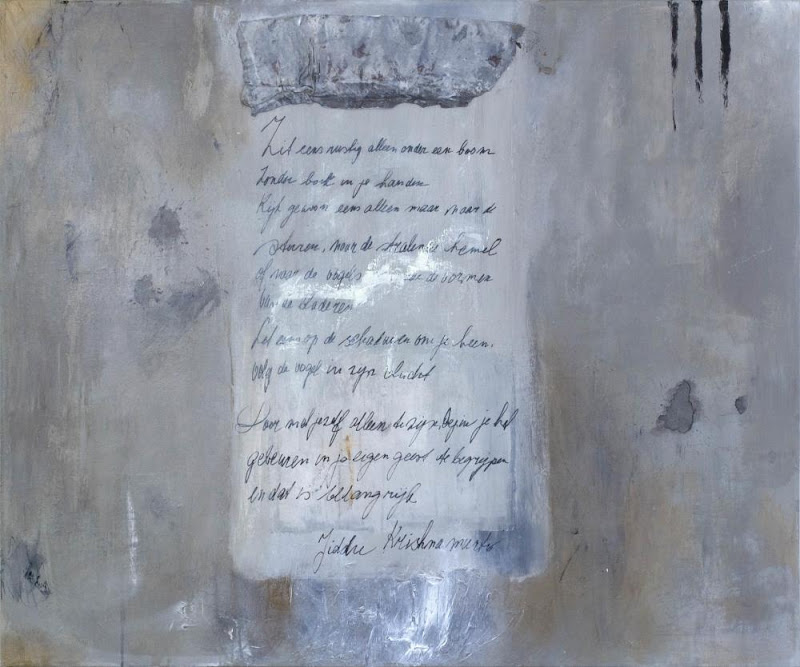 Zit eens rustig alleen onder een boom
Zonder boek in je handen
Kijk gewoon eens alleen maar naar de
sterren, naar de stralende hemel
of naar de vogels de vormen
van de bladeren
Let eens op de schaduwen om je heen.
Volg de vogel in zijn vlucht
Door met jezelf alleen te zijn je het
gebeuren in je eigen geest te begrijpen
en dat is belangrijk
Jiddu Krishnamurti